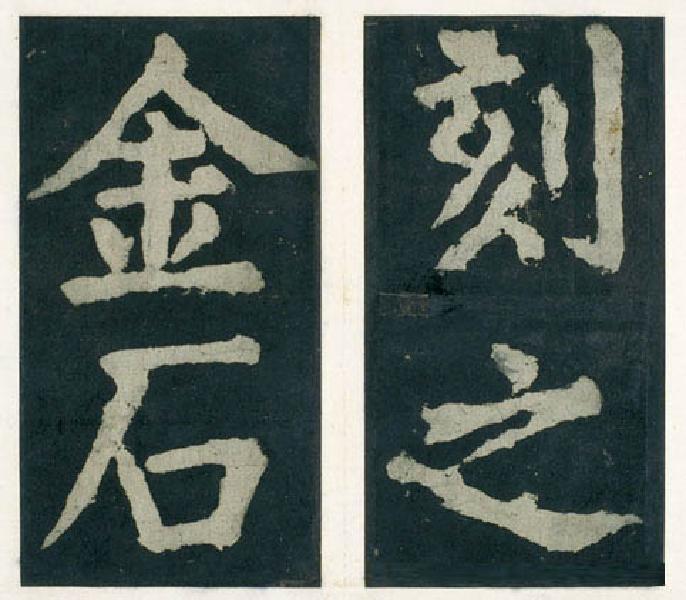 刻之
金石